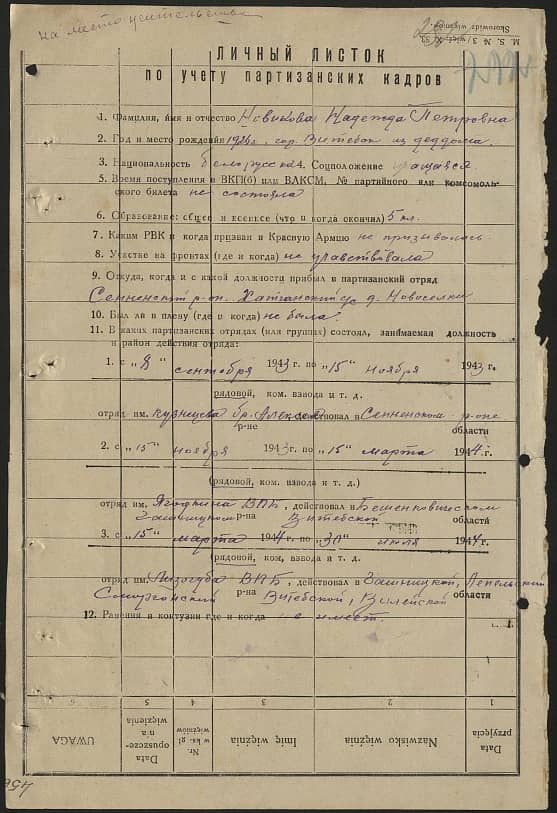 на место жительства
M. S. № 3/więz. K. 53
Skorowidz więzniów
ЛИЧНЫЙ ЛИСТОК
по учету партизанских кадров
1. Фамилия, имя и отчество Новикова Надежда Петровна
2. Год и место рождения 1926г. гор. Витебск из деддома.
3. Национальность белорусска 4. Соцположение учащаяся
5. Время поступления в ВКП(б) или ВЛКСМ, № партийного или комсомоль-
ского билета не состояла
6. Образование: общее и военное (что и когда окончил) 5 кл.
7. Каким РВК и когда призван в Красную Армию не призывалась
8. Участие на фронтах (где и когда) не участвовала
9. Откуда, когда и с какой должности прибыл в партизанский отряд
Сенненский р-он. д. Новоселки
10. Был ли в плену (где и когда) не была
11. В каких партизанских отрядах (или группах) состоял, занимаемая должность
и район действия отряда:
1. с „8“ сентября 1943 г. по „15“ ноября 1943 г.
рядовой, ком. взвода и т. д.
отряд им. Кузнецова бр. Алексея действовал в Сенненском р-оне
р-не области
2. с „15“ ноября 1943 г. по „15“ марта 1944 г.
(рядовой, ком. взвода и т. д.)
отряд им. Ягодкина ВПБ, действовал в Бешенковичском
р-на Витебской области
3. с „15“ марта 1944 г. по „30“ июля 1944 г.
(рядовой, ком. взвода и т. д.
отряд им. Лизогуба ВПБ, действовал в Лепельский
Сморгонский р-на Витебской, Вилейской области
12. Ранения и контузии где и когда не имеет
1 2 3 4 5 6
Data przyjęcia
Nazwisko więźnia
Imię więźnia
Nr. w ks. gł. więźniów
Data opuszcze- nia więzienia
UWAGA
456